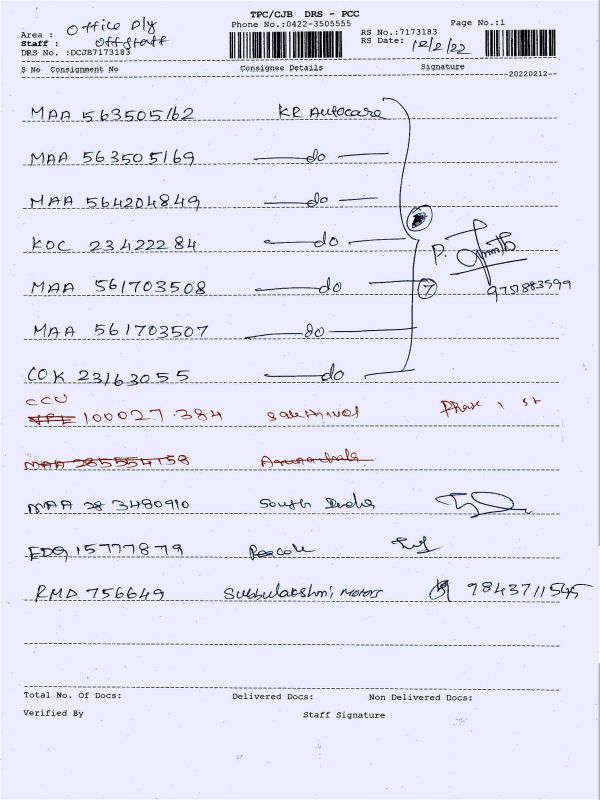 TPC/CJB DRS - PCC
Phone No.:0422-3505555
Page No.:1
Area : Office Dly
Staff : Offstaff
DRS No. :DCJB7173183
RS No.:7173183
RS Date: 12/2/22
S No Consignment No Consignee Details Signature
--20220212--
MAA 563505162 KR Autocare
MAA 563505169 do
MAA 564204849 do
KOC 23422284 do
P.
MAA 561703508 do 7 9751883599
MAA 561703507 do
COK 23163055 do
CCU
100027384 Sakthivel
MAA 285554758 Arunachala
MAA 283480910 South India
EDQ 15777879
RMD 756649 Subbulakshmi Motors 9843711545
Total No. Of Docs: Delivered Docs: Non Delivered Docs:
Verified By Staff Signature